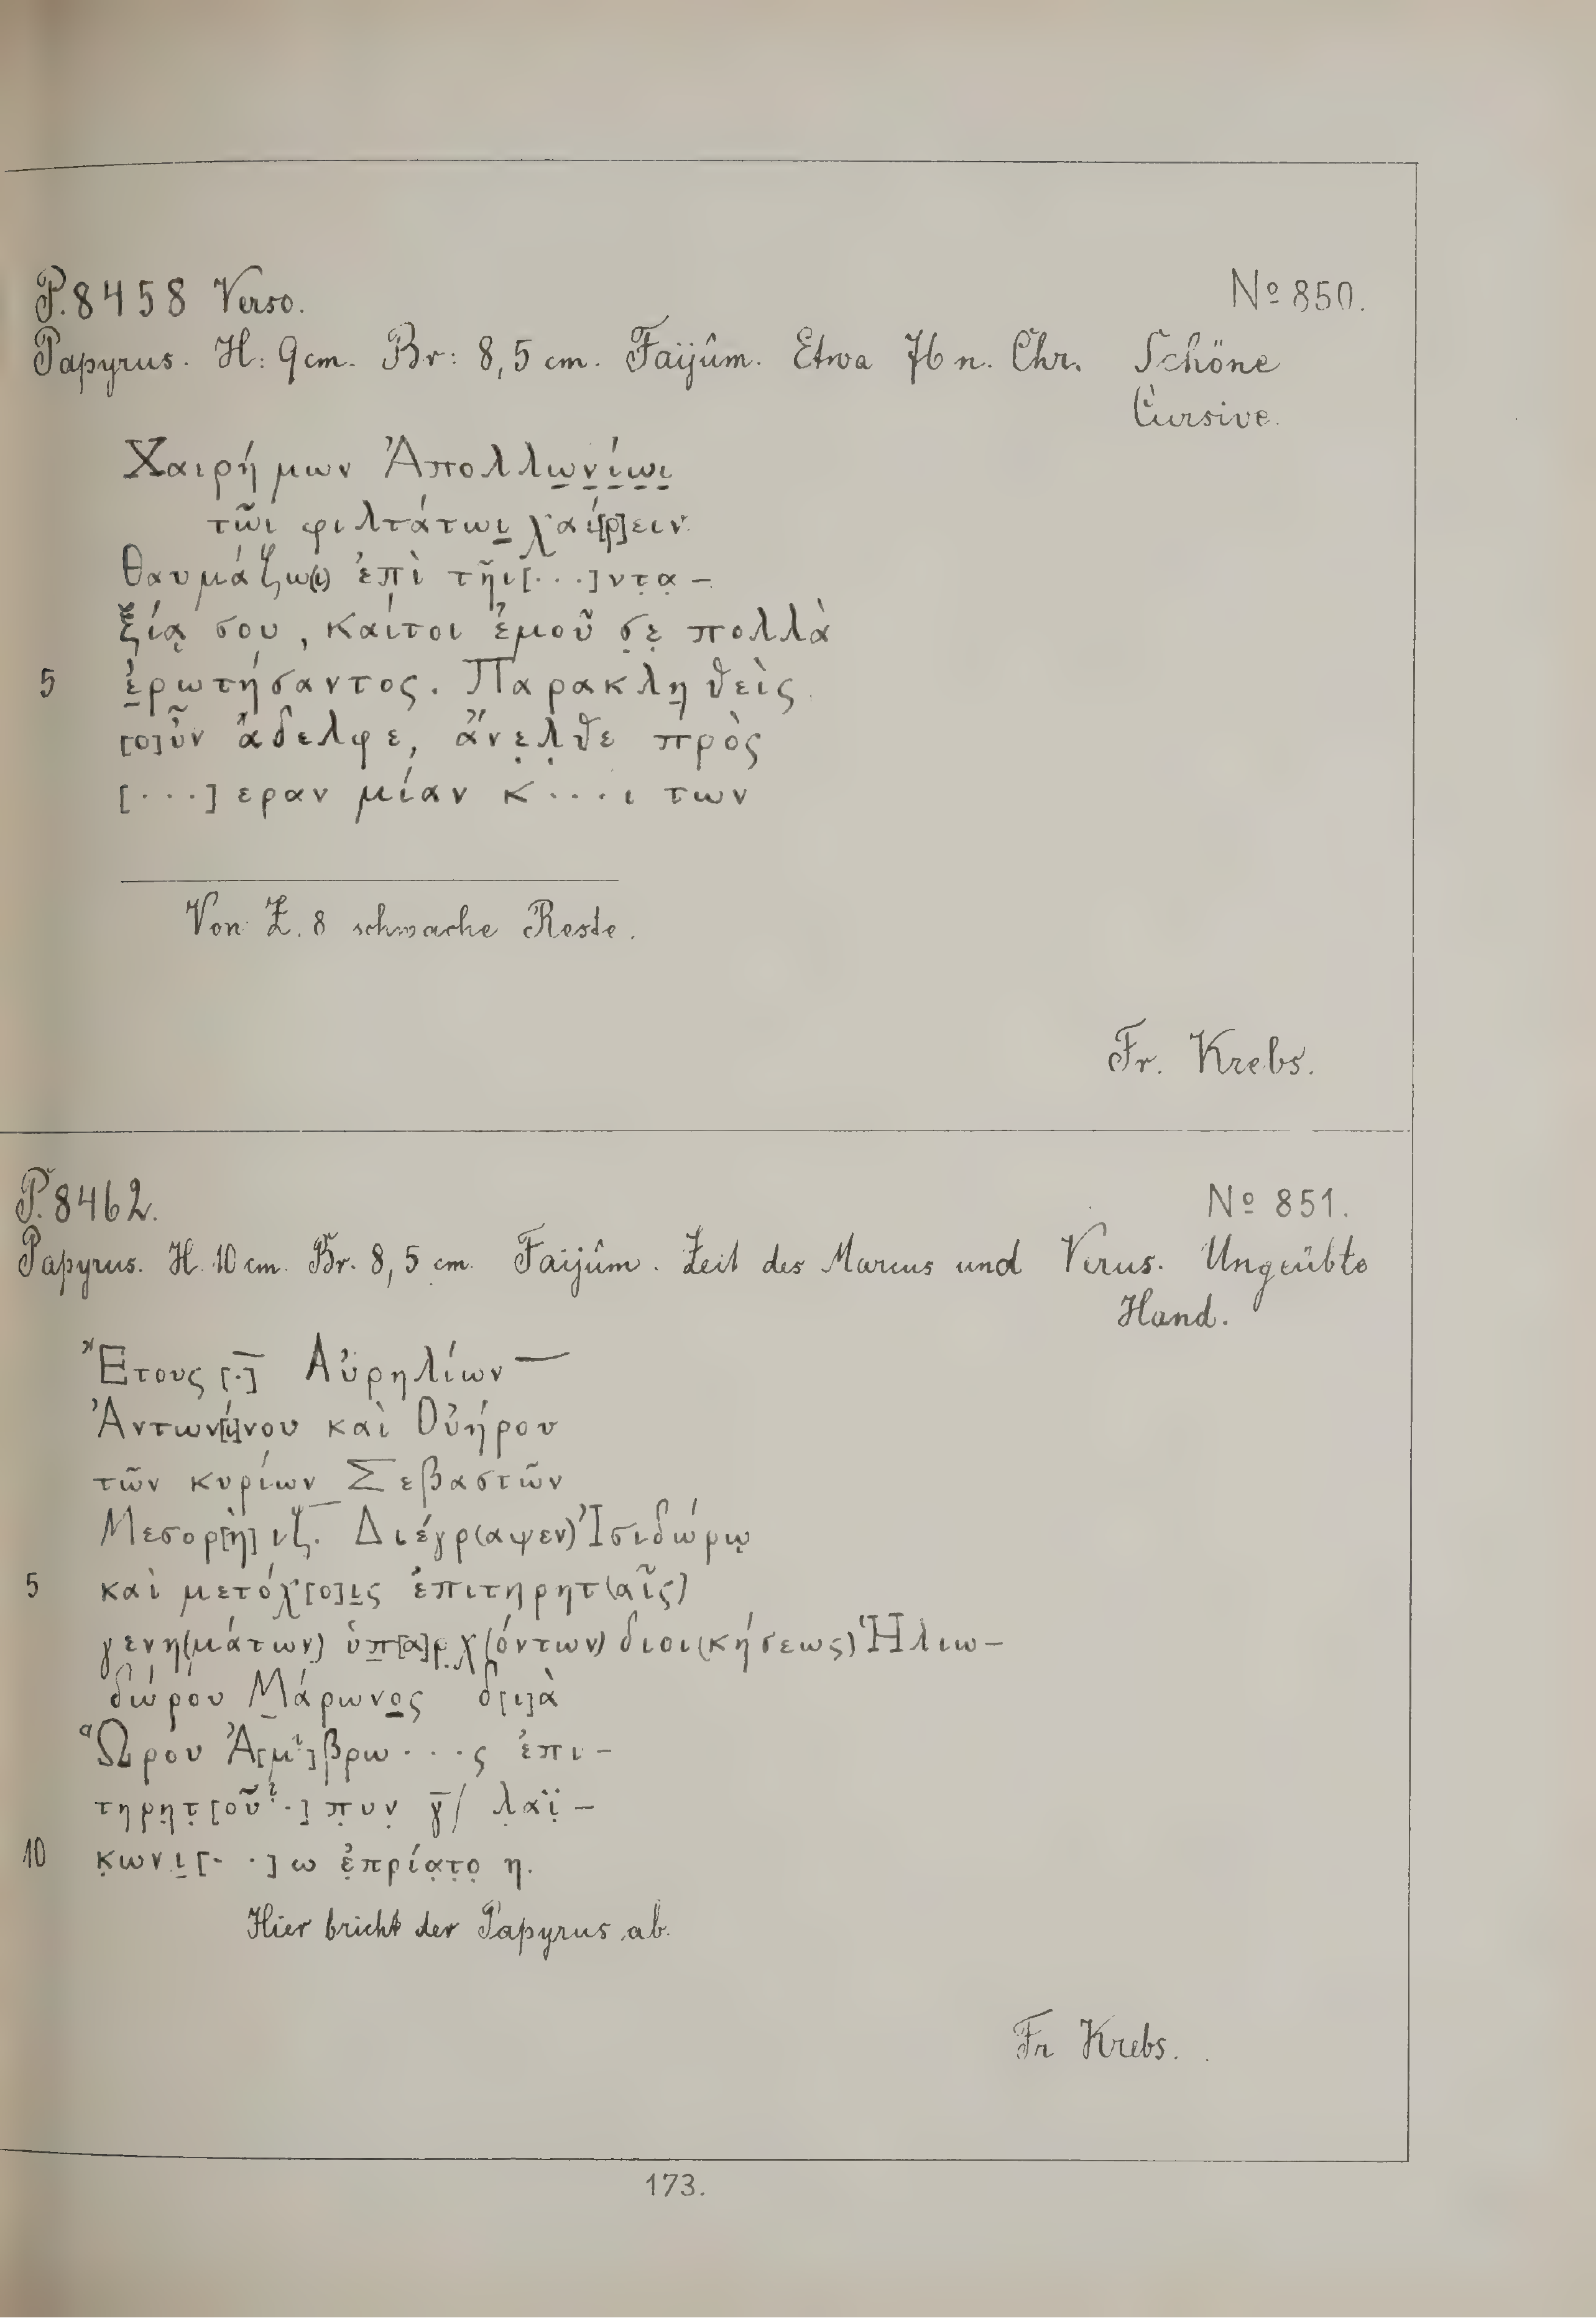 P. 8458 Verso.
Nº 850.
Papyrus. H: 9 cm. Br: 8,5 cm. Faijûm. Etwa 76 n. Chr. Schöne
Cursive.
Χαιρήμων Ἀπολλω̣ν̣ί̣ω̣ι̣
τῶι φιλτάτωι̣ χαί[ρ]ειν
Θαυμάζω(ι) ἐπὶ τῆι[...]ντ̣α̣-
ξίᾳ σου, καίτοι ἐμοῦ σ̣ε̣ πολλὰ
5 ἐ̣ρωτήσαντος. Παρακλη̣θεὶς
[ο]ὖν ἄδελφε, ἄνε̣λ̣θε πρὸς
[...]εραν μίαν κ....ι των
Von Z. 8 schwache Reste.
Fr. Krebs.
P. 8462.
Nº 851.
Papyrus. H. 10 cm. Br. 8,5 cm. Faijûm. Zeit des Marcus und Verus. Ungeübte
Hand.
Ἔτους [.] Αὐρηλίων
Ἀντων[ί]νου καὶ Οὐήρου
τῶν κυρίων Σεβαστῶν
Μεσορ[ὴ] ιζ̅. Διέγρ(αψεν) Ἰσιδώρῳ
5 καὶ μετόχ[ο]ι̣ς ἐπιτηρητ(αῖς)
γενη(μάτων) ὑπ̣[α]ρ̣χ̣(όντων) διοι(κήσεως) Ἡλιω-
δώρου Μ̣άρωνο̣ς δ[ι]ὰ
Ὥρου Ἀ[μ?]βρω...ς ἐπι-
τηρη̣τ̣[οῦ?.] π̣υν̣ γ̅/ λ̣αϊ̣-
10 κ̣ωνι̣[..]ω ἐ̣πρία̣τ̣ο̣ η.
Hier bricht der Papyrus ab.
Fr Krebs.
173.